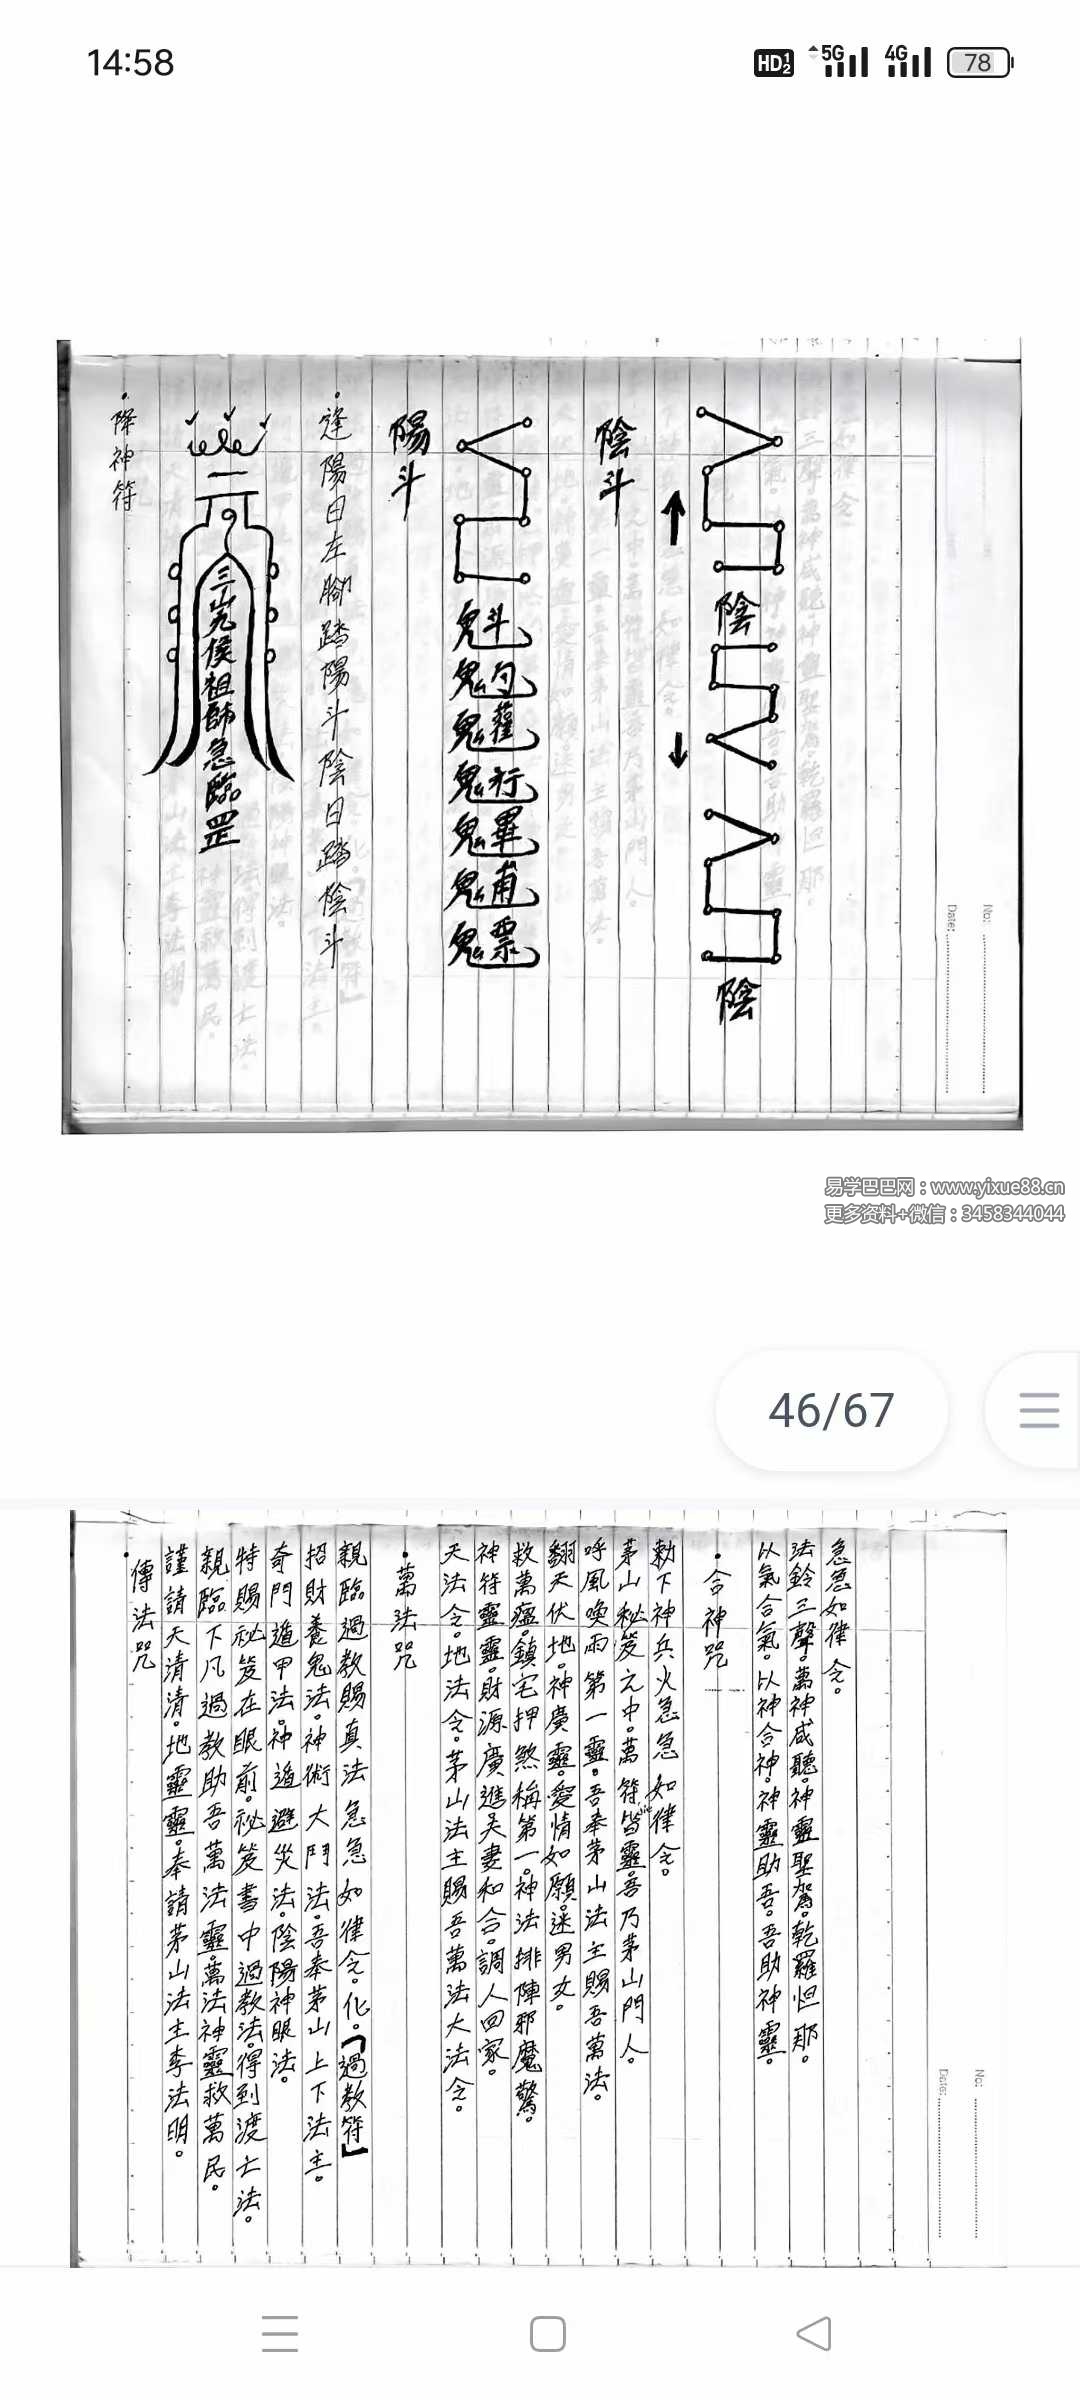 14:58
HD 1 2 5G 4G 78
降神符
三山九侯祖師急臨罡
逢陽日左腳踏陽斗陰日踏陰斗
陽斗
魁
魒
陰斗
陰
陰
No:
Date:
易学巴巴网：www.yixue88.cn
更多资料+微信：3458344044
46/67
傳法咒
謹請天清清。地靈靈。奉請茅山法主李法明。
親臨下凡過教助吾萬法靈。萬法神靈救萬民。
特賜祕笈在眼前。祕笈書中過教法。得到渡亡法。
奇門遁甲法。神遁避災法。陰陽神眼法。
招財養鬼法。神術大鬥法。吾奉茅山上下法主。
親臨過教賜真法急急如律令。化。「過教符」
萬法咒
天法令。地法令。茅山法主賜吾萬法大法令。
神符靈靈。財源廣進夫妻和合。調人回家。
救萬瘟。鎮宅押煞稱第一。神法排陣邪魔驚。
翻天伏地。神廣靈。愛情如願。迷男女。
呼風喚雨第一靈。吾奉茅山法主賜吾萬法。
茅山秘笈之中。萬符皆靈。吾乃茅山門人。
勅下神兵火急急如律令。
合神咒
以氣合氣。以神合神。神靈助吾。吾助神靈。
法鈴三聲。萬神咸聽。神靈聖駕。乾羅怛耶。
急急如律令。
No:
Date: